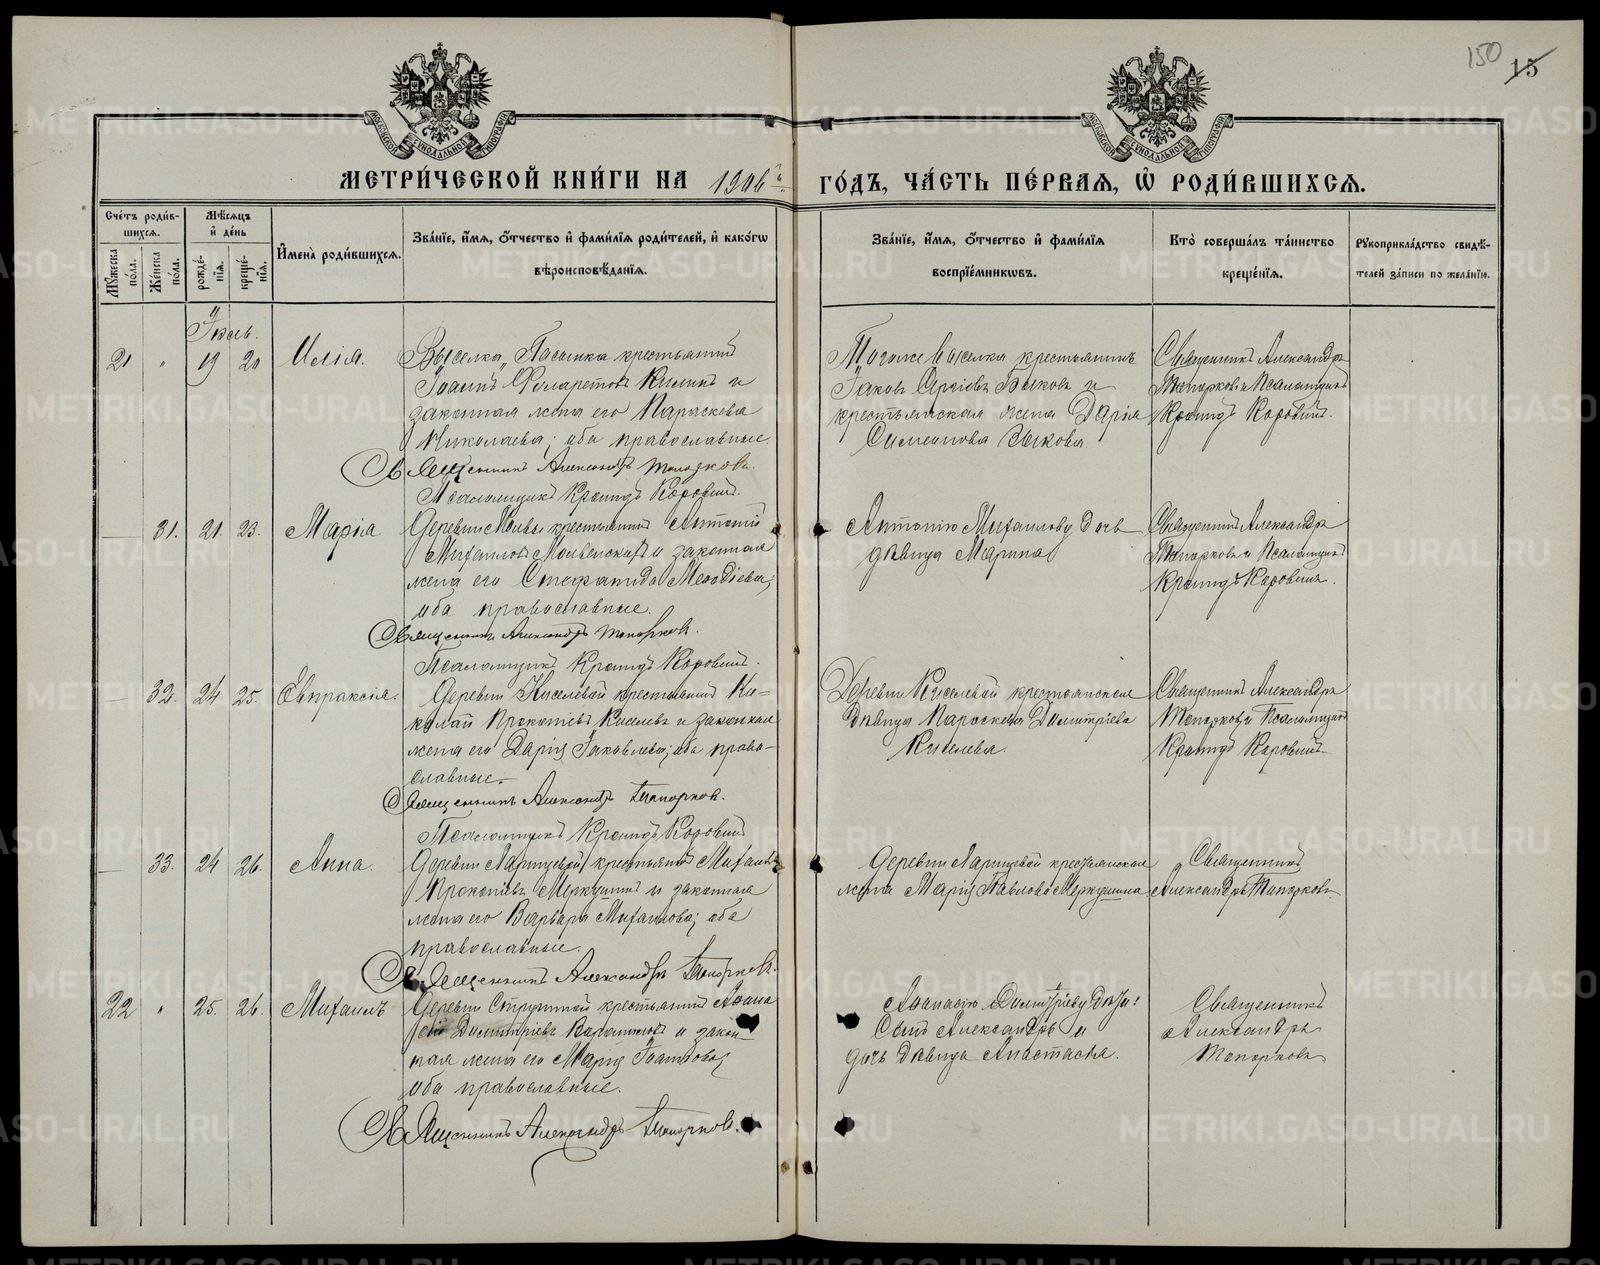 150
15
МЕТРИ́ЧЕСКОЙ КНИ́ГИ НА 1906 й
ГО́ДЪ, ЧА́СТЬ ПЕ́РВАЯ, Ѡ҆ РОДИ́ВШИХСЯ.
Сче́тъ роди́в-
шихся.
Мѣ́сяцъ
и҆ де́нь
Мꙋ́жеска
по́ла.
Же́нска
по́ла.
рожде́-
нїя.
креще́-
нїя.
И҆мена̀ роди́вшихся.
Зва́нїе, и҆́мя, ѻ҆́тчество и҆ фами́лїя роди́телей, и҆ како́гѡ
вѣроисповѣ́данїя.
Зва́нїе, и҆́мя, ѻ҆́тчество и҆ фами́лїя
воспрїе́мникѡвъ.
Кто̀ соверша́лъ та́инство
креще́нїя.
Рꙋкоприкла́дство свидѣ́-
телей за́писи по жела́нїю.
Іюль.
21 " 19 20 Илія.
Выселка "Пасынка крестьянинъ
Іоаннъ Филаретовъ Килинъ и
законная жена его Параскева
Николаева; оба православные.
Священникъ Александръ Топорковъ.
Псаломщикъ Кронидъ Коровинъ.
Тогоже Выселка крестьянинъ
Іаковъ Сергіевъ Быковъ и
крестьянская жена Дарія
Симеонова Быкова
Священникъ Александръ
Топорковъ и Псаломщикъ
Кронидъ Коровинъ.
— 31. 21. 23. Марія
Деревни крестьянинъ Антоній
Михаиловъ и законная
жена его Стефанида Меѳодіева;
оба православные.
Священникъ Александръ Топорковъ.
Псаломщикъ Кронидъ Коровинъ.
Антонію Михаилову дочь
дѣвица Марина
Священникъ Александръ
Топорковъ и Псаломщикъ
Кронидъ Коровинъ.
— 32. 24 25. Евпраксія.
Деревни Киселевой крестьянинъ Ни-
колай Прокопіевъ Киселевъ и законная
жена его Дарія Іаковлева; оба право-
славные.
Священникъ Александръ Топорковъ.
Псаломщикъ Кронидъ Коровинъ
Деревни Киселевой крестьянская
дѣвица Параскева Димитріева
Киселева.
Священникъ Александръ
Топорковъ и Псаломщикъ
Кронидъ Коровинъ
— 33. 24 26. Анна.
Деревни Ларицевой крестьянинъ Михаилъ
Прокопіевъ Меркушинъ и законная
жена его Варвара Михаилова; оба
православные.
Священникъ Александръ Топорковъ.
Деревни Ларицевой крестьянская
жена Марія Павлова Меркушина
Священникъ
Александръ Топорковъ.
22 " 25. 26. Михаилъ
Деревни крестьянинъ Аѳана
сій Димитріевъ и закон-
ная жена его Марія Іоаннова;
оба православные.
Священникъ Александръ Топорковъ.
Аѳанасію Димитріеву
Сынъ Александръ и
дочь дѣвица Анастасія.
Священникъ
Александръ
Топорковъ